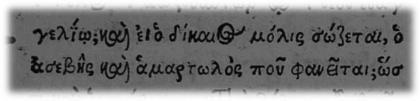 γελίῳ; καὶ εἰ ὁ δίκαιος μόλις σώζεται, ὁ
ἀσεβὴς καὶ ἁμαρτωλὸς ποῦ φανεῖται; ὥσ